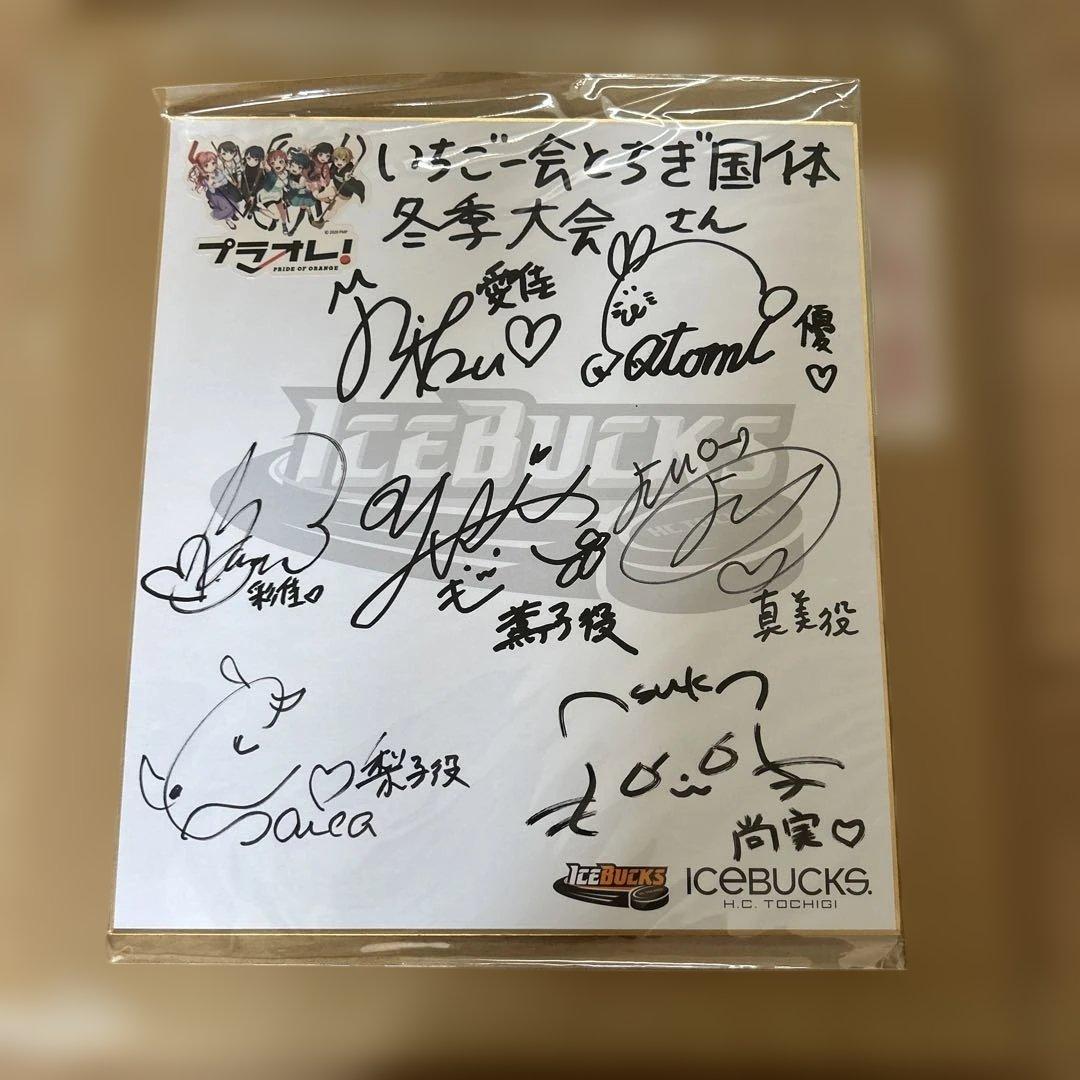 いちご一会とちぎ国体
冬季大会 さん
© 2020 PMP
プラオレ!
PRIDE OF ORANGE
愛佳
atomi
優♡
ICEBUCKS
H.C. TOCHIGI
彩佳♡
薫子役
真美役
梨子役
saica
suk
尚実♡
ICEBUCKS
ICEBUCKS.
H.C. TOCHIGI